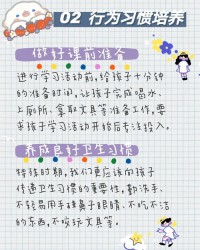 02 行为习惯培养
做好课前准备
进行学习活动前,给孩子十分钟
的准备时间,让孩子完成喝水、
上厕所、拿取文具等准备工作,要
求孩子学习活动开始后专注投入。
养成良好卫生习惯
特殊时期,我们更应该向孩子
传递卫生习惯的重要性,勤洗手、
不轻易用手揉鼻子眼睛、不吃不洁
的东西,不啃咬文具等。